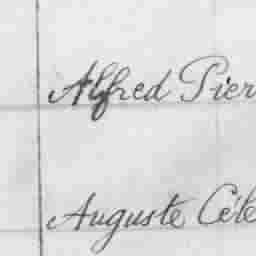 Alfred Pier
Auguste Céle